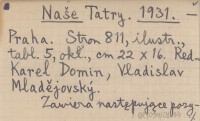 Naše Tatry. 1931. —
Praha. Stron 811, ilustr.,
tabl. 5, okł., cm 22 x 16. Red.
Karel Domin, Vladislav
Mladějovský.
Zawiera następujące pozy-